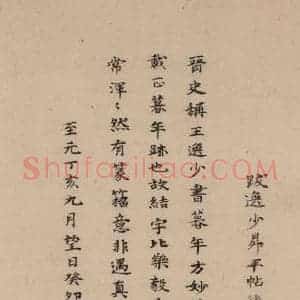 跋逸少昇平帖後
晉史稱王逸少書暮年方妙
載正暮年跡也故結字比樂毅
常渾〻然有篆籀意非遇真
至元丁亥九月望日癸卯
ShufaZiliao.COM